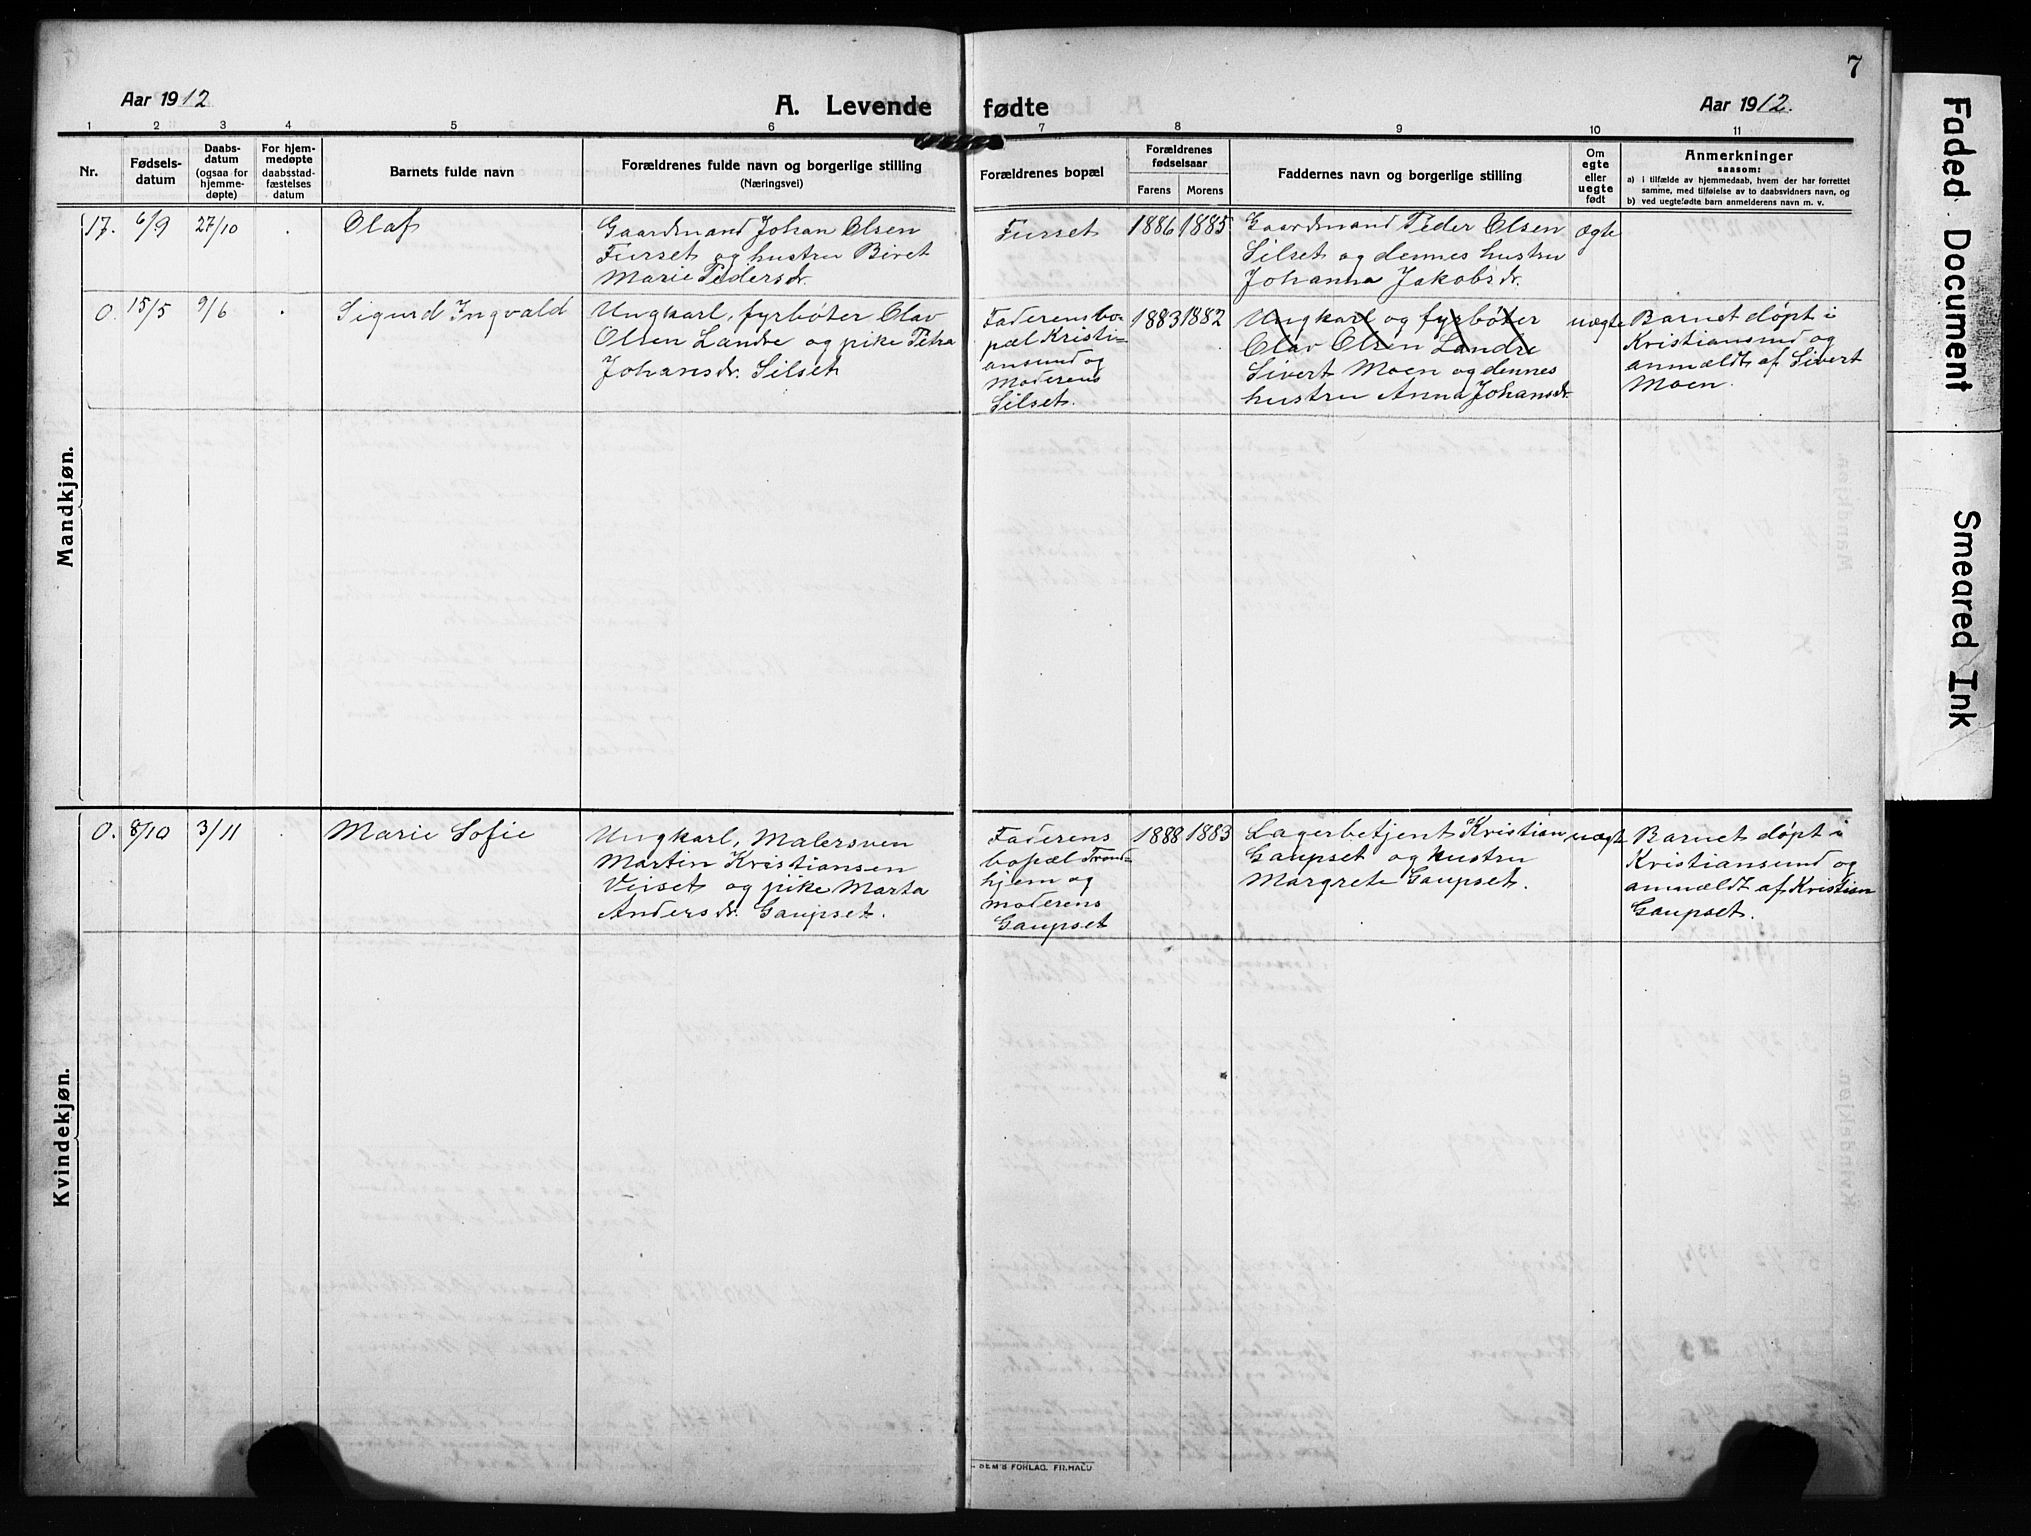 7
Aar 1912
A. Levende fødte
Aar 1912.
1 2 3 4 5 6 7 8 9 10 11
Nr.
Fødsels-
datum
Daabs-
datum
(ogsaa for
hjemme-
døpte)
For hjem-
medøpte
daabsstad-
fæstelses
datum
Barnets fulde navn
Forældrenes fulde navn og borgerlige stilling
(Næringsvei)
Forældrenes bopæl
Forældrenes
fødselsaar
Farens Morens
Faddernes navn og borgerlige stilling
Om
egte
eller
uegte
født
Anmerkninger
saasom:
a) i tilfælde av hjemmedaab, hvem der har forrettet
samme, med tilføielse av to daabsvidners navn, og
b) ved uegtefødte barn anmelderens navn m. v.
Mandkjøn.
17. 6/9 27/10 Olaf
Gaardmand Johan Olsen
Furset og hustru Biret
Marie Pedersdr.
Furset
1886 1885
Gaardmand Peder Olsen
Silset og dennes hustru
Johanna Jakobsdr.
ægte
0. 15/5 9/6 Sigurd Ingvald
Ungkarl, fyrbøter Olav
Olsen Landre og pike Petra
Johansdr. Silset
Faderens bo-
pæl Kristi-
ansund og
Moderens
Silset.
1883 1882
Ungkarl og fyrbøter
Olav Olsen Landre
Sivert Moen og dennes
hustru Anna Johansdr
uægte
Barnet døpt i
Kristiansund og
anmældt af Sivert
Moen.
Kvindekjøn.
0. 8/10 3/11 Marie Sofie
Ungkarl, Malersven
Martin Kristiansen
Veiset og pike Marta
Andersdr. Gaupset.
Faderens
bopæl Trond-
hjem og
moderens
Gaupset
1888 1883
Lagerbetjent Kristian
Gaupset og hustru
Margrete Gaupset.
uægte
Barnet døpt i
Kristiansund og
anmældt af Kristian
Gaupset.
SEM'S FORLAG. FR.HALD
Faded Document
Smeared Ink